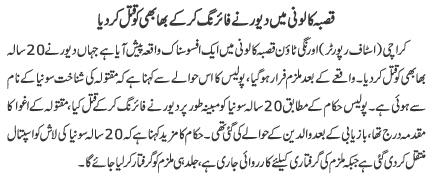 قصبہ کالونی میں دیور نے فائرنگ کر کے بھابھی کو قتل کر دیا
کراچی (اسٹاف رپورٹر) اورنگی ٹاؤن قصبہ کالونی میں ایک افسوسناک واقعہ پیش آیا ہے جہاں دیور نے 20 سالہ
بھابھی کو قتل کر دیا۔ واقعے کے بعد ملزم فرار ہو گیا، پولیس کا اس حوالے سے کہنا ہے کہ مقتولہ کی شناخت سونیا کے نام
سے ہوئی ہے۔ پولیس حکام کے مطابق 20 سالہ سونیا کو مبینہ طور پر دیور نے فائرنگ کر کے قتل کیا، مقتولہ کے اغوا کا
مقدمہ درج تھا، بازیابی کے بعد والدین کے حوالے کی گئی تھی۔ حکام کا مزید کہنا ہے کہ 20 سالہ سونیا کی لاش کو اسپتال
منتقل کر دی گئی ہے جبکہ ملزم کی گرفتاری کیلئے کارروائی جاری ہے، جلد ہی ملزم کو گرفتار کر لیا جائے گا۔